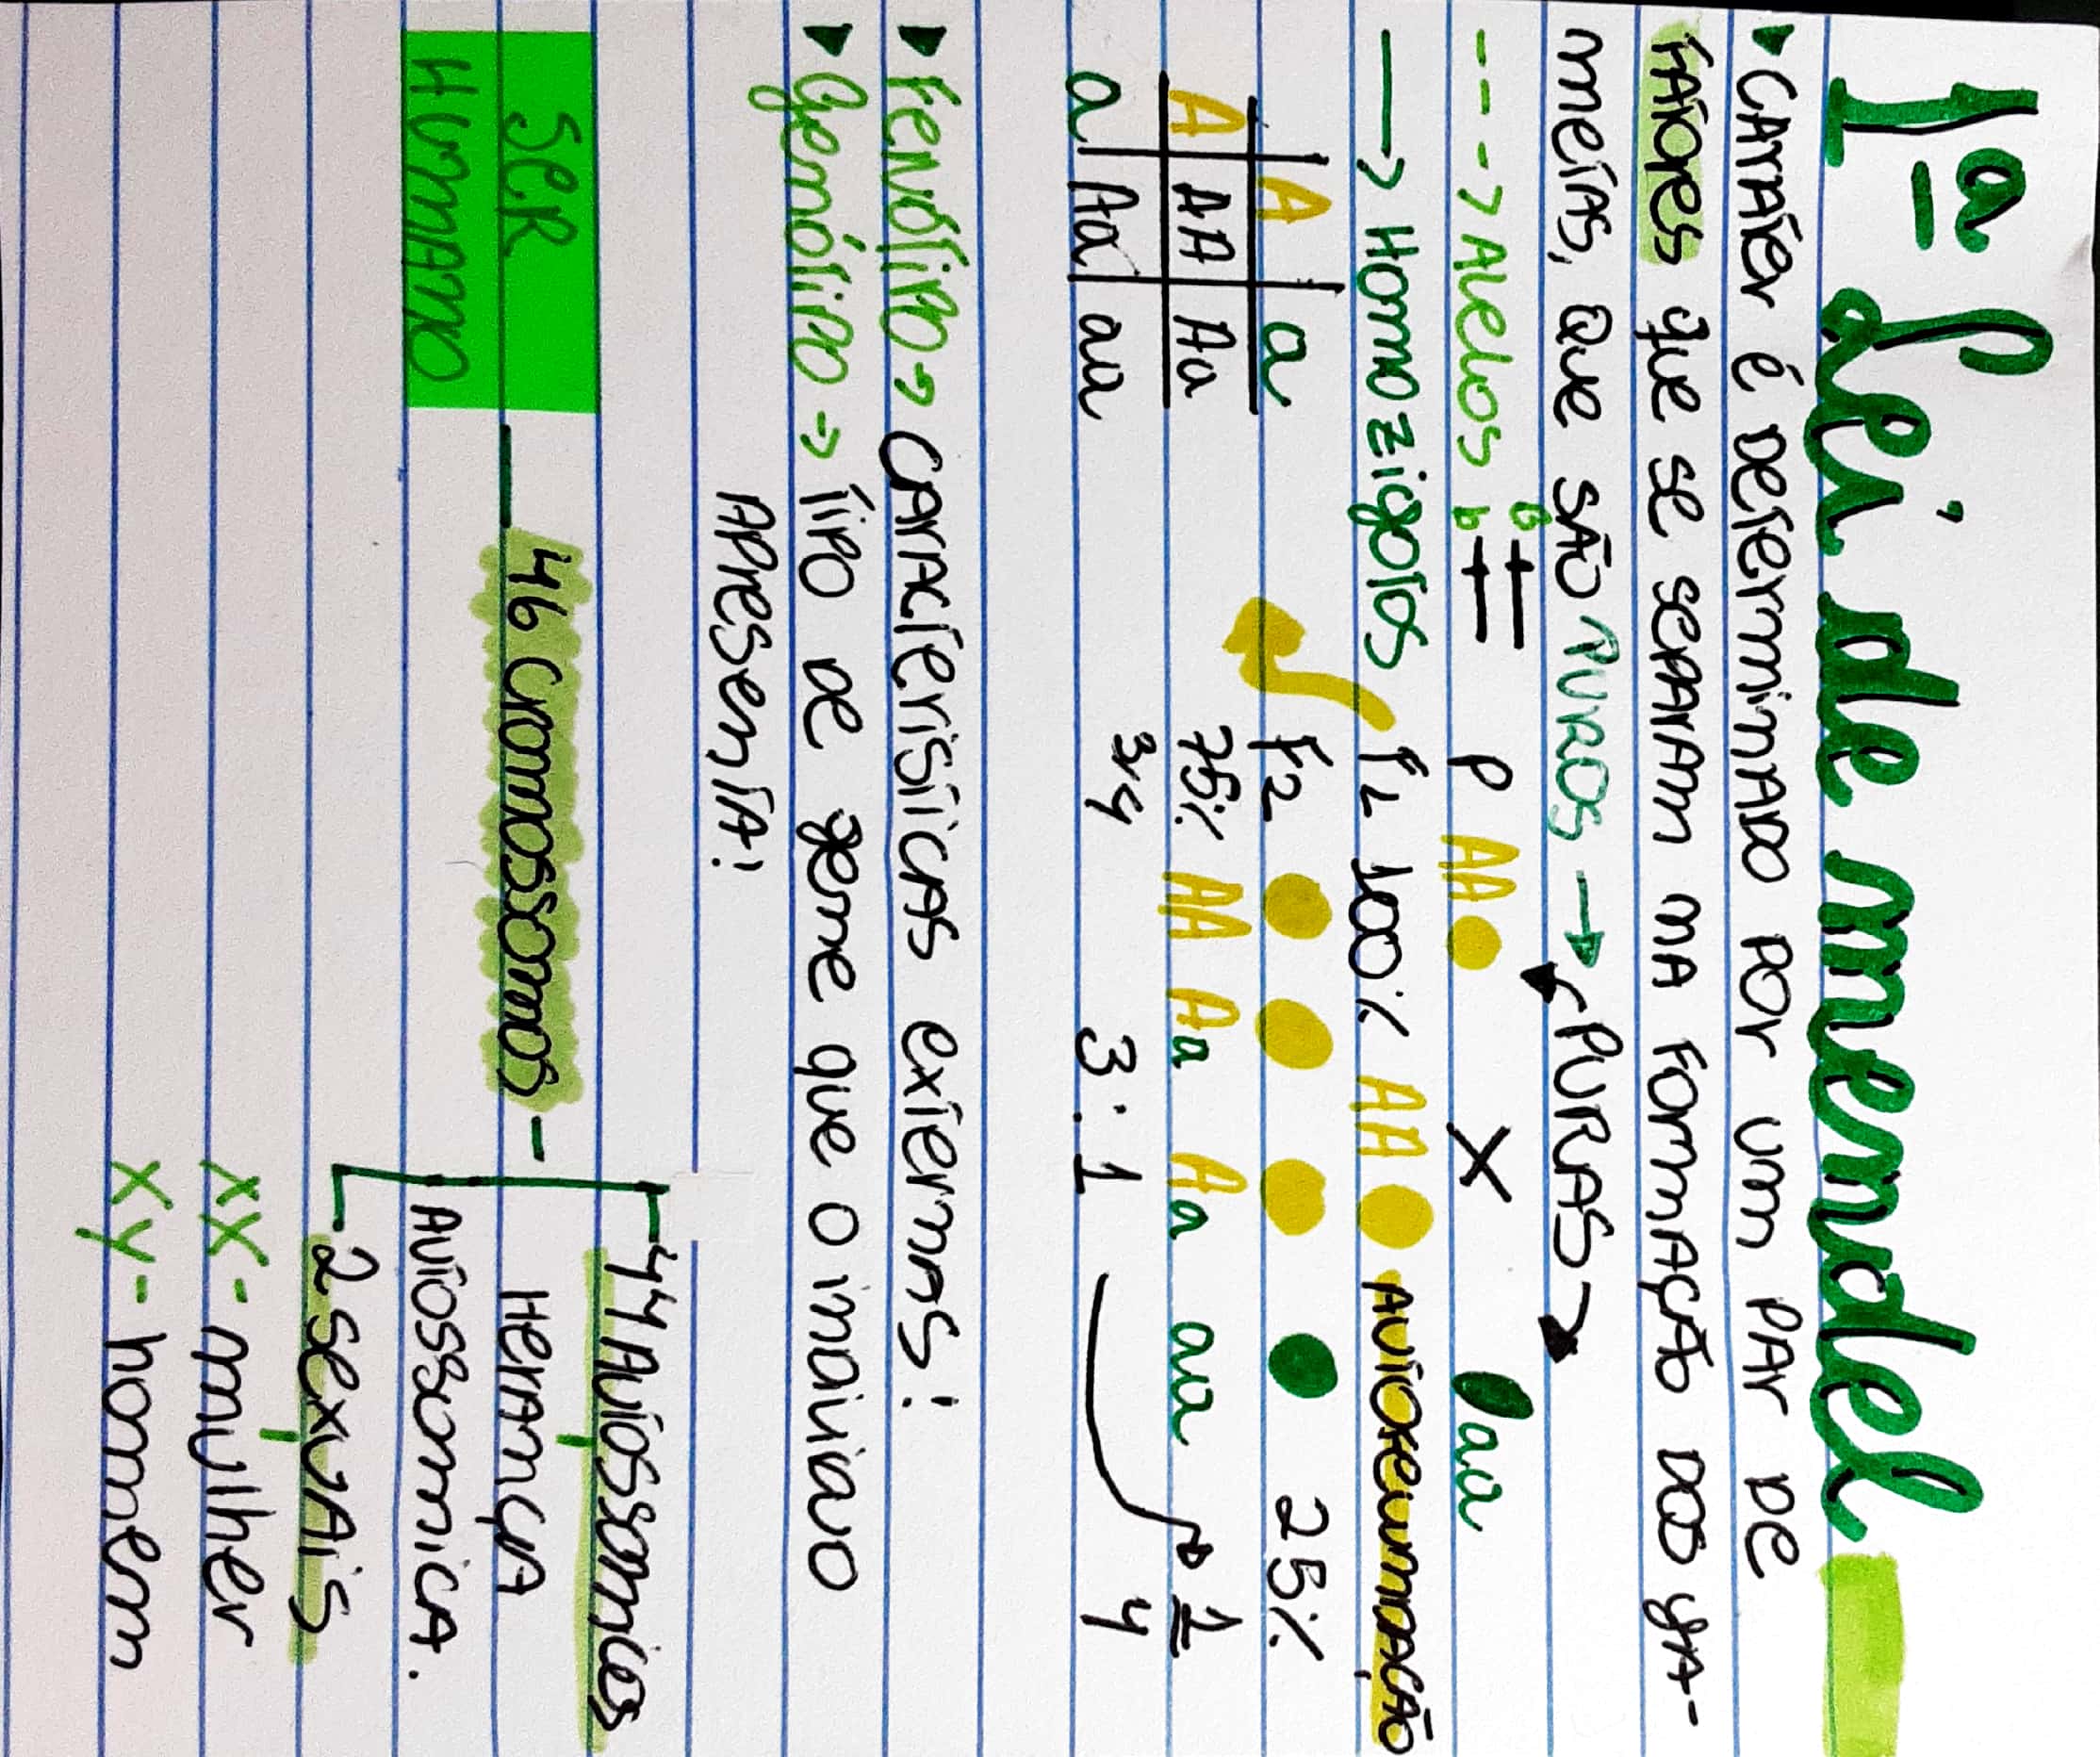 1ª Lei de mendel
▸ CARATÉR É DETERMINADO POR UM PAR DE
FATORES QUE SE SEPARAM NA FORMAÇÃO DOS GA-
METAS, QUE SÃO PUROS → PURAS
---> Alelos B b P AA X aa
→ Homozigotos F1 100% AA AUTOFECUNDAÇÃO
A a F2 25%
A AA Aa 75% AA Aa Aa aa 1
a Aa aa 3/4 3:1 4
▸ FENÓTIPO → CARACTERISTICAS EXTERNAS!
▸ Genótipo → TIPO DE gene que o INDIVIDUO
APRESENTA!
SER
HUMANO
46 Cromossomos
44 AUTOSSOMICOS
HERANÇA
AUTOSSOMICA.
2 SEXUAIS
XX - mulher
Xy - homem